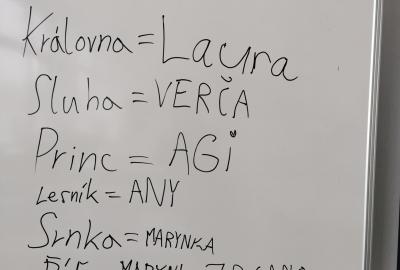 Královna = Laura
Sluha = VERČA
Princ = AGi
Lesník = ANY
Srnka = MARYNKA